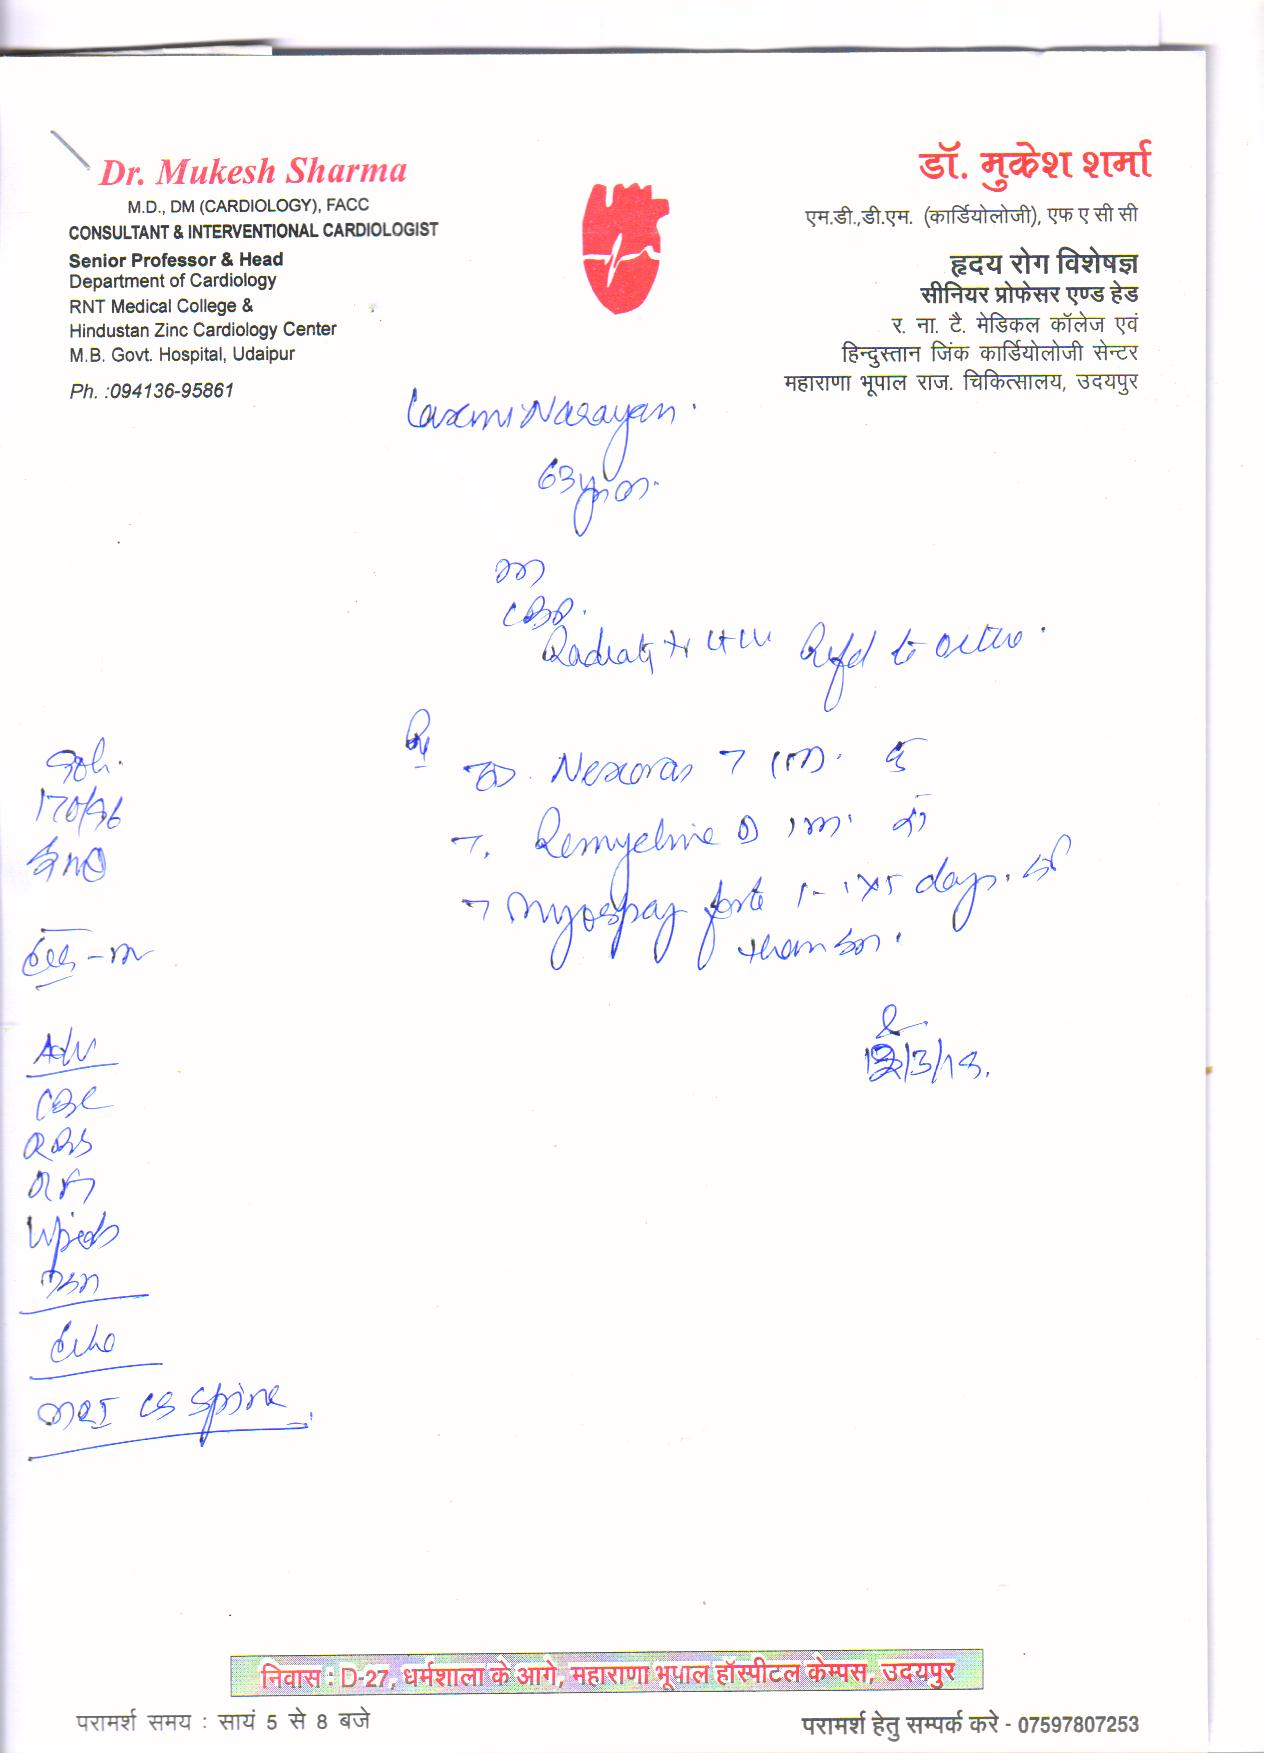 Dr. Mukesh Sharma
M.D., DM (CARDIOLOGY), FACC
CONSULTANT & INTERVENTIONAL CARDIOLOGIST
Senior Professor & Head
Department of Cardiology
RNT Medical College &
Hindustan Zinc Cardiology Center
M.B. Govt. Hospital, Udaipur
Ph. :094136-95861
डॉ. मुकेश शर्मा
एम.डी.,डी.एम. (कार्डियोलोजी), एफ ए सी सी
हृदय रोग विशेषज्ञ
सीनियर प्रोफेसर एण्ड हेड
र. ना. टै. मेडिकल कॉलेज एवं
हिन्दुस्तान जिंक कार्डियोलोजी सेन्टर
महाराणा भूपाल राज. चिकित्सालय, उदयपुर
Laxmi Narayan.
63
Refd to ortho.
Rx
Remyeline D
Myospaz forte 1-1x5 days.
/3/18.
80/.
170/96
Adv
CBC
RBS
RFT
Lipids
TSH
Echo
MRI CS Spine
निवास : D-27, धर्मशाला के आगे, महाराणा भूपाल हॉस्पीटल केम्पस, उदयपुर
परामर्श समय : सायं 5 से 8 बजे
परामर्श हेतु सम्पर्क करे - 07597807253